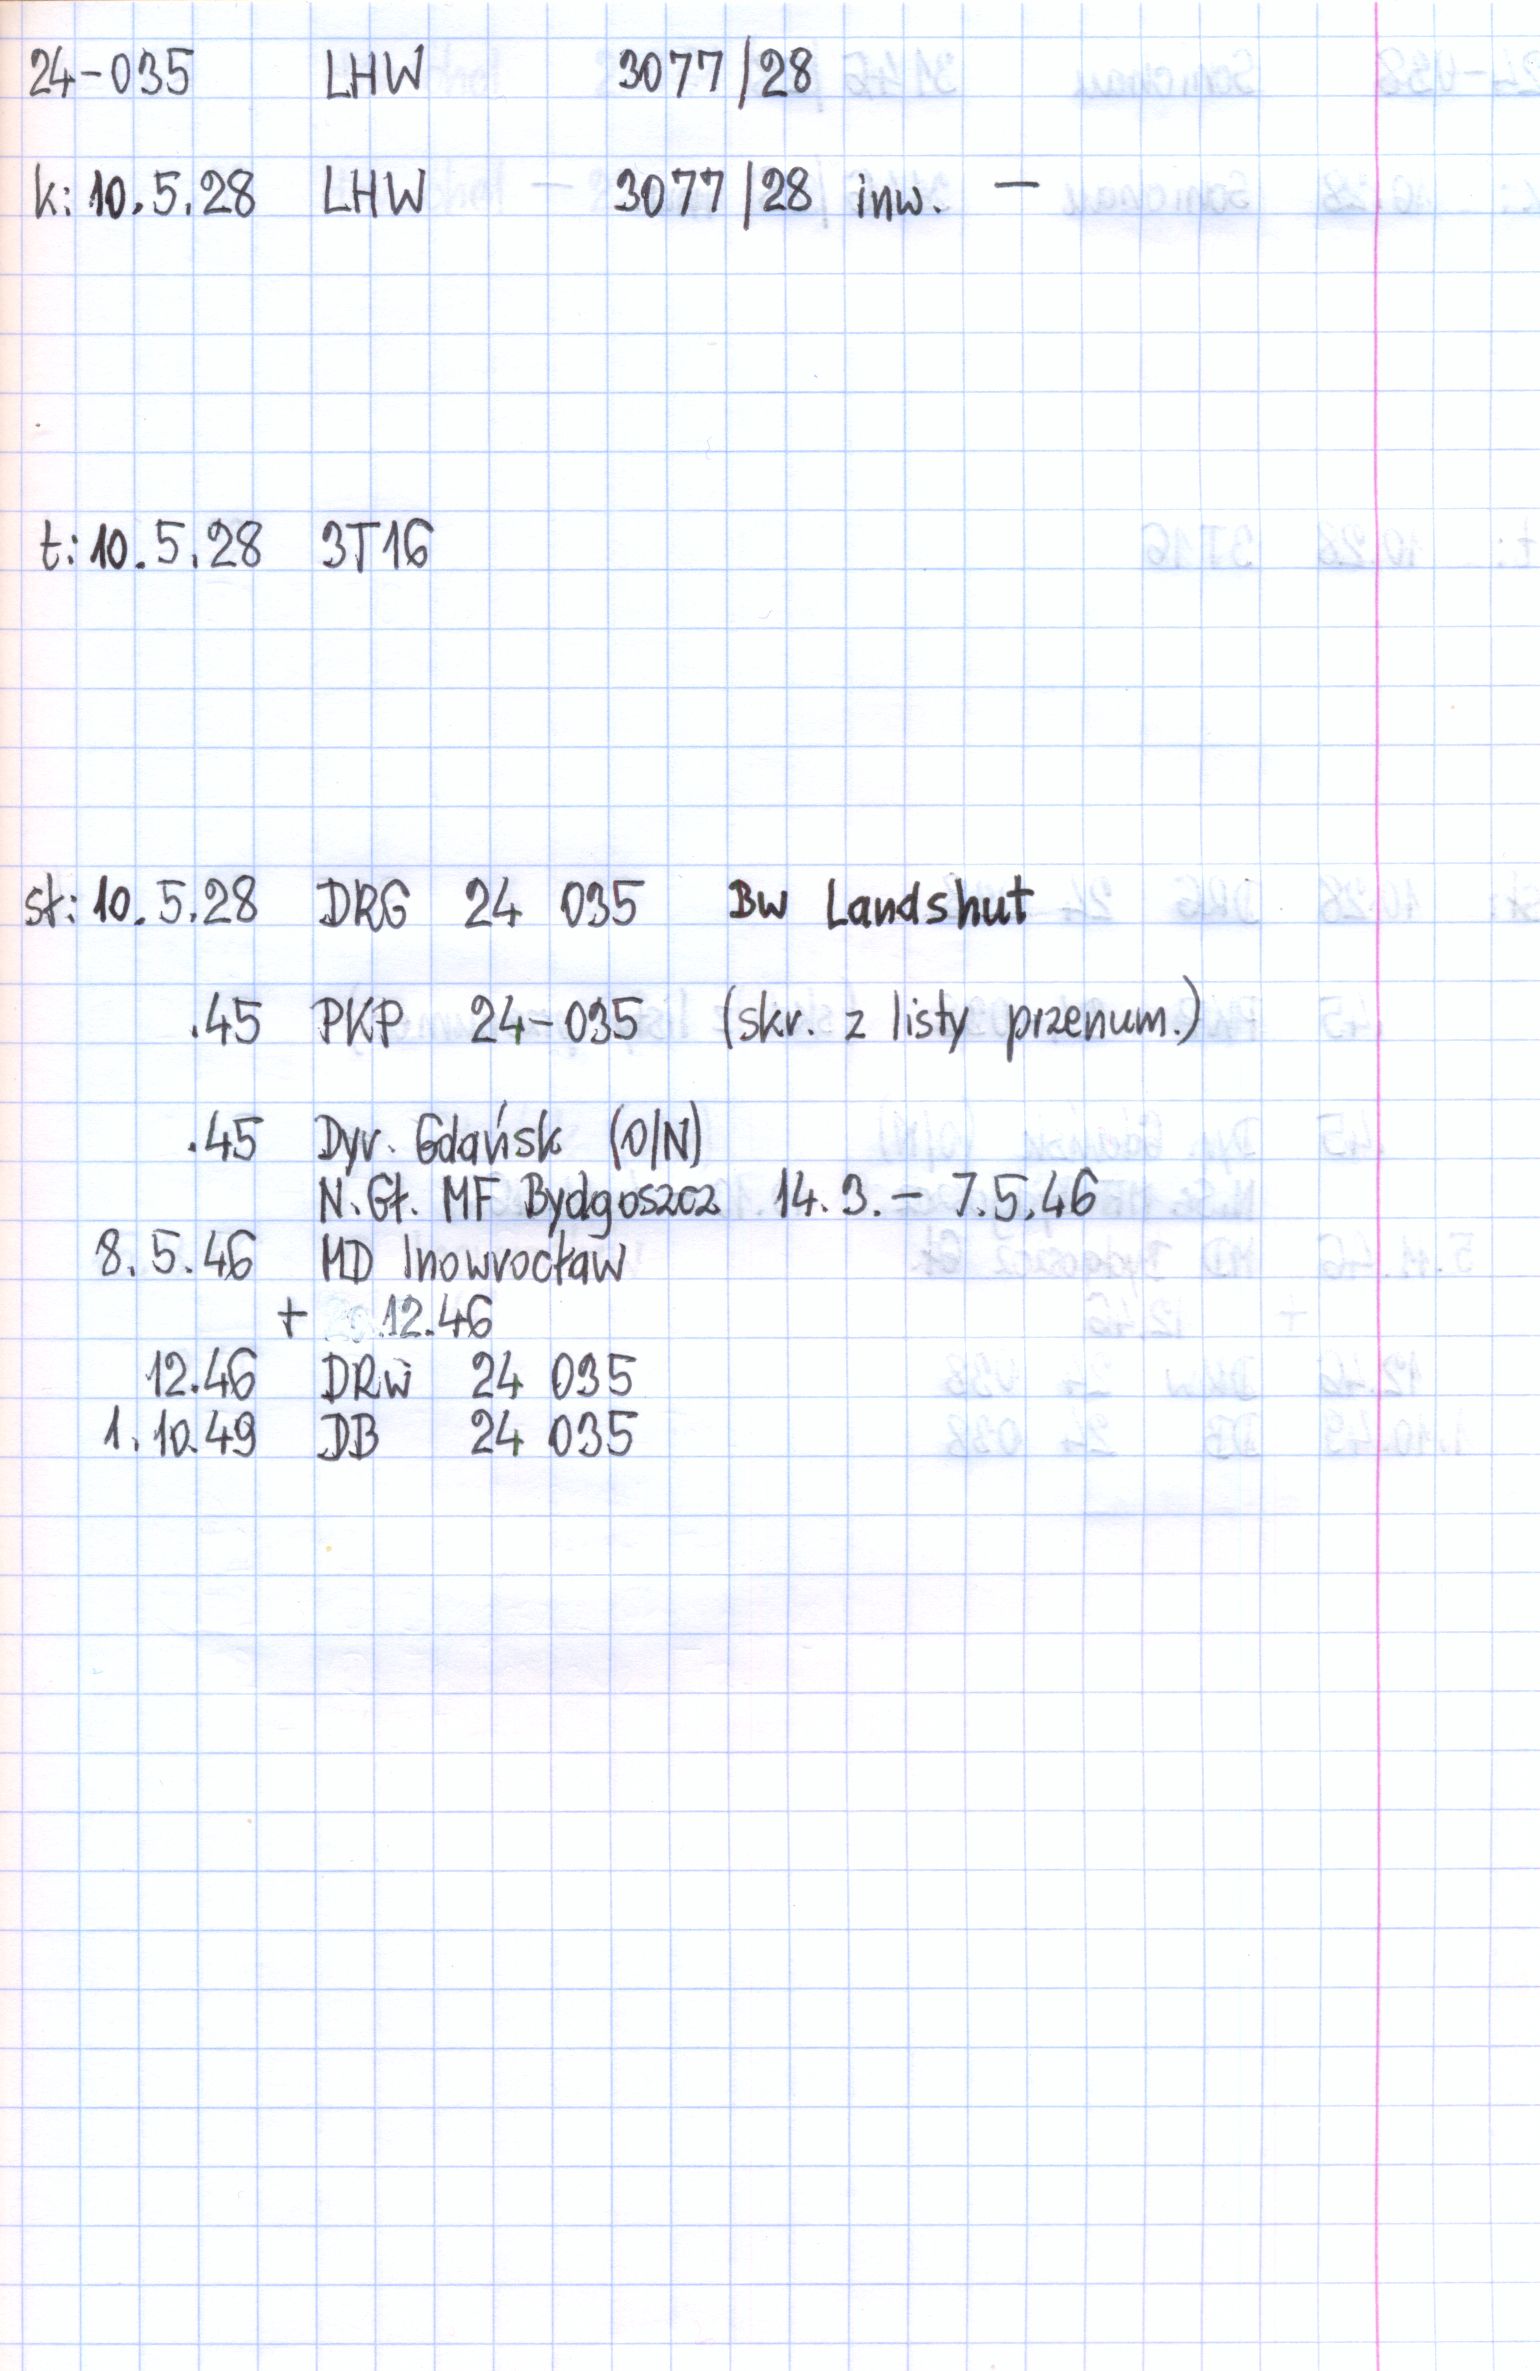 24-035 LHW 3077/28
k: 10.5.28 LHW 3077/28 inw. —
t: 10.5.28 3T16
st: 10.5.28 DRG 24 035 Bw Landshut
.45 PKP 24-035 (skr. z listy przenum.)
.45 Dyr. Gdańsk (O/N)
N.Gł. MF Bydgoszcz 14.3.– 7.5.46
8.5.46 MD Inowrocław
+ .12.46
12.46 DRw 24 035
1.10.49 DB 24 035